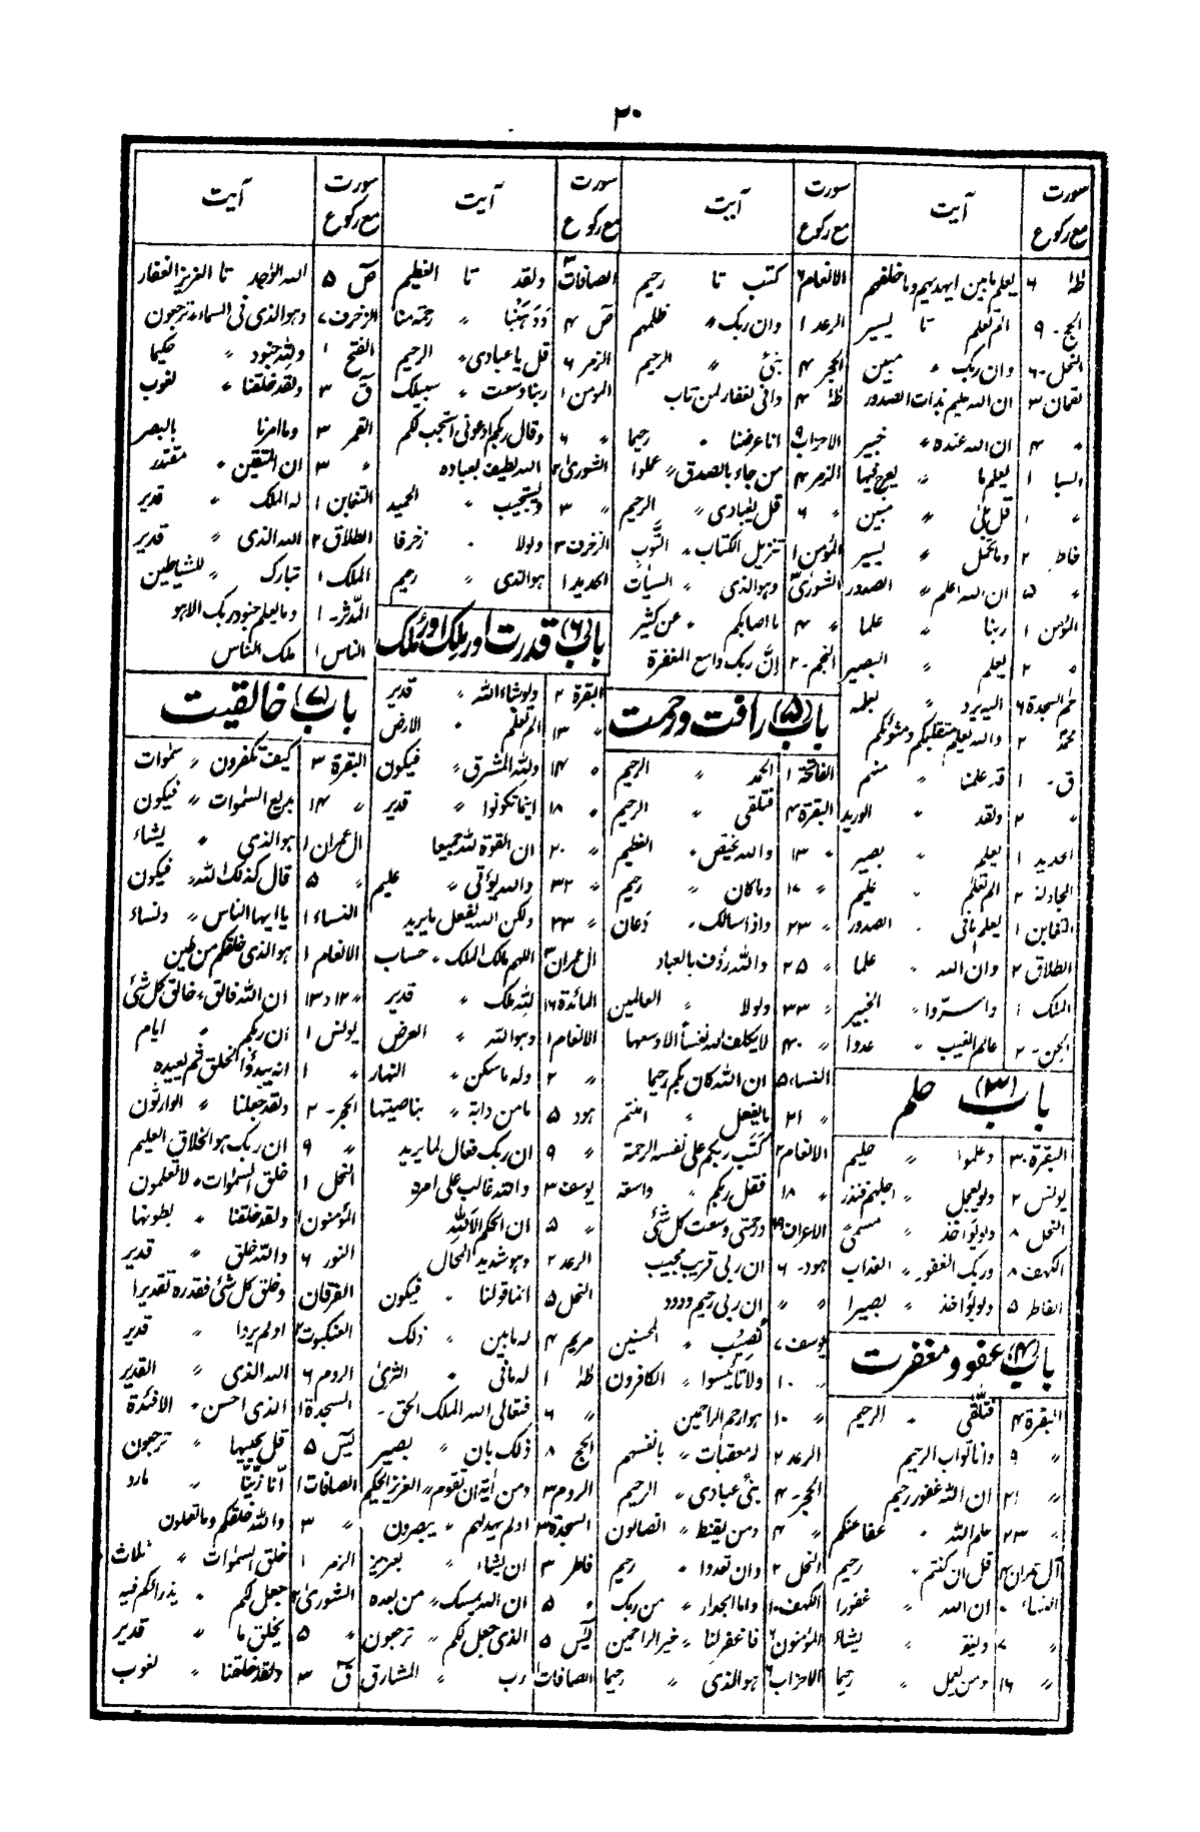 ۲۰
سورت مع رکوع | آیت
طہٰ ۶ | یعلم ما بین ایدیہم وما خلفہم
الحج ۔ ۹ | الم تعلم تا یسیر
النحل ۔ ۶ | وان ربک 〃 مبین
لقمان ۳ | ان اللہ علیم بذات الصدور
〃 ۴ | ان اللہ عندہ 〃 خبیر
السبا ۱ | یعلم ما 〃 یعرج فیہا
〃 ۱ | قل بلیٰ 〃 مبین
فاطر ۲ | وما تحمل 〃 یسیر
〃 ۵ | ان اللہ اعلم 〃 الصدور
المؤمن ۱ | ربنا 〃 علما
〃 ۲ | یعلم 〃 البصیر
حٰم السجدۃ ۶ | الیہ یرد 〃 بعلمہ
محمدؐ ۲ | واللہ یعلم متقلبکم ومثوٰکم
ق ۔ ۱ | قد علمنا 〃 منہم
〃 ۲ | ولقد 〃 الورید
الحدید ۱ | یعلم 〃 بصیر
المجادلۃ ۲ | الم تعلم 〃 علیم
التغابن ۱ | یعلم مافی 〃 الصدور
الطلاق ۲ | وان اللہ 〃 علما
الملک ۱ | واسرّوا 〃 الخبیر
الجن ۔ ۲ | عالم الغیب 〃 عددا
باب (۳) حلم
البقرۃ ۳۰ | وعلموا 〃 حلیم
یونس ۲ | ولو یعجل 〃 اجلہم فنذر
النحل ۸ | ولو یؤاخذ 〃 مسمیً
الکہف ۸ | وربک الغفور 〃 العذاب
الفاطر ۵ | ولو یؤاخذ 〃 بصیرا
باب (۴) عفو و مغفرت
البقرۃ ۴ | فتلقّٰی 〃 الرحیم
〃 ۹ | وانا تواب الرحیم
〃 ۲۱ | ان اللہ غفور رحیم
〃 ۲۳ | علم اللہ 〃 عفا عنکم
آل عمران ۴ | قل ان کنتم 〃 رحیم
النساء ۔ | ان اللہ 〃 غفورا
〃 ۷ | ویغفر 〃 یشاء
〃 ۱۶ | ومن یعمل 〃 رحیما
سورت مع رکوع | آیت
الانعام ۶ | کتب تا رحیم
الرعد ۱ | وان ربک 〃 ظلمہم
الحجر ۴ | نبیٔ 〃 الرحیم
طہٰ ۴ | وانی لغفار لمن تاب
الاحزاب ۹ | انا عرضنا 〃 رحیما
الزمر ۴ | من جاء بالصدق 〃 عملوا
〃 ۶ | قل یٰعبادی 〃 الرحیم
المؤمن ۱ | تنزیل الکتاب 〃 التَّوب
الشوریٰ ۳ | وہو الذی 〃 السیأت
〃 ۴ | ما اصابکم 〃 عن کثیر
النجم ۔ ۲ | انَّ ربک واسع المغفرۃ
باب (۵) رافت و رحمت
الفاتحۃ ۱ | الحمد 〃 الرحیم
البقرۃ ۴ | فتلقی 〃 الرحیم
〃 ۱۳ | واللہ یختص 〃 العظیم
〃 ۱۷ | وما کان 〃 رحیم
〃 ۲۳ | واذا سالک 〃 دعان
〃 ۲۵ | واللہ رؤف بالعباد
〃 ۳۳ | ولولا 〃 العالمین
〃 ۴۰ | لا یکلف اللہ نفساً الا وسعہا
النساء ۵ | ان اللہ کان بکم رحیما
〃 ۲۱ | ما یفعل 〃 امنتم
الانعام ۲ | کتب ربکم علی نفسہ الرحمۃ
〃 ۱۸ | فقل ربکم 〃 واسعۃ
الاعراف ۱۹ | ورحمتی وسعت کل شیٔ
ہود ۔ ۶ | ان ربی قریب مجیب
〃 〃 | ان ربی رحیم ودود
یوسف ۷ | نصیب 〃 المحسنین
〃 ۱۰ | ولا تایٔسوا 〃 الکافرون
〃 ۱۰ | ہو ارحم الراحمین
الرعد ۲ | لہ معقبات 〃 بانفسہم
الحجر ۔ ۴ | نبیٔ عبادی 〃 الرحیم
〃 ۴ | ومن یقنط 〃 الضالون
النحل ۲ | وان تعدوا 〃 رحیم
الکہف ۱۰ | واما الجدار 〃 من ربک
المؤمنون ۶ | فاغفر لنا 〃 خیر الراحمین
الاحزاب ۶ | ہو الذی 〃 رحیما
سورت مع رکوع | آیت
الصافات ۳ | ولقد تا العظیم
صٓ ۴ | وَوَہَبْنا 〃 رحمۃ منا
الزمر ۶ | قل یا عبادی 〃 الرحیم
المومن ۱ | ربنا وسعت 〃 سبیلک
〃 ۶ | وقال ربکم ادعونی استجب لکم
الشوریٰ ۲ | اللہ لطیف بعبادہ
〃 ۳ | ویستجیب 〃 الحمید
الزخرف ۳ | ولولا 〃 زخرفا
الحدید ۱ | ہو الذی 〃 رحیم
باب (۶) قدرت اور مِلک اور مُلک
البقرۃ ۲ | ولو شاء اللہ 〃 قدیر
〃 ۱۳ | الم تعلم 〃 الارض
〃 ۱۴ | وللہ المشرق 〃 فیکون
〃 ۱۸ | اینما تکونوا 〃 قدیر
〃 ۲۰ | ان القوۃ للہ جمیعا
〃 ۳۲ | واللہ یؤتی 〃 علیم
〃 ۳۳ | ولکن اللہ یفعل ما یرید
اٰل عمران ۳ | اللہم مالک الملک 〃 حساب
المائدۃ ۱۶ | للہ ملک 〃 قدیر
الانعام ۱ | وہو اللہ 〃 العرض
〃 ۲ | ولہ ما سکن 〃 النہار
ہود ۵ | ما من دابۃ 〃 بناصیتہا
〃 ۹ | ان ربک فعال لما یرید
یوسف ۳ | واللہ غالب علی امرہ
〃 ۵ | ان الحکم الا للہ
الرعد ۲ | وہو شدید المحال
النحل ۵ | انما قولنا 〃 فیکون
مریم ۴ | لہ ما بین 〃 ذلک
طہٰ ۱ | لہ مافی 〃 الثریٰ
〃 ۶ | فتعالی اللہ الملک الحق ۔
الحج ۸ | ذلک بان 〃 بصیر
الروم ۳ | ومن آیۃ ان تقوم 〃 العزیز الحکیم
السجدۃ ۳ | اولم یہد لہم 〃 یبصرون
فاطر ۳ | ان یشاء 〃 بعزیز
〃 ۵ | ان اللہ یمسک 〃 من بعدہ
یٰسٓ ۵ | الذی جعل لکم 〃 ترجعون
الصافات ۱ | رب 〃 المشارق
سورت مع رکوع | آیت
صٓ ۵ | اللہ الواحد تا العزیز الغفار
الزخرف ۷ | وہو الذی فی السماء 〃 ترجعون
الفتح ۱ | وللہ جنود 〃 حکیما
قٓ ۳ | ولقد خلقنا 〃 لغوب
القمر ۳ | وما امرنا بالبصر
〃 ۳ | ان المتقین 〃 مقتدر
التغابن ۱ | لہ الملک 〃 قدیر
الطلاق ۲ | اللہ الذی 〃 قدیر
الملک ۱ | تبارک 〃 للشیاطین
المدّثر ۔ ۱ | وما یعلم جنود ربک الا ہو
الناس ۱ | ملک الناس
باب (۷) خالقیت
البقرۃ ۳ | کیف تکفرون 〃 سمٰوات
〃 ۱۴ | بدیع السمٰوات 〃 فیکون
اٰل عمران ۱ | ہو الذی 〃 یشاء
〃 ۵ | قال کذلک اللہ 〃 فیکون
النساء ۱ | یا ایہا الناس 〃 ونساء
الانعام ۱ | ہو الذی خلقکم من طین
〃 ۱۲ و ۱۳ | ان اللہ فالق 〃 خالق کل شیٔ
یونس ۱ | ان ربکم 〃 ایام
〃 ۱ | انہ یبدؤا الخلق ثم یعیدہ
الحجر ۔ ۲ | ولقد جعلنا 〃 الوارثون
〃 ۹ | ان ربک ہو الخلاق العلیم
النحل ۱ | خلق السمٰوات 〃 لا تعلمون
المؤمنون ۱ | ولقد خلقنا 〃 بطونہا
النور ۶ | واللہ خلق 〃 قدیر
الفرقان ۱ | وخلق کل شیٔ فقدرہ تقدیرا
العنکبوت ۲ | اولم یروا 〃 قدیر
الروم ۶ | اللہ الذی 〃 القدیر
السجدۃ ۱ | الذی احسن 〃 الافئدۃ
یٰسٓ ۵ | قل یحییہا 〃 ترجعون
الصافات ۱ | انّا زیّنّا 〃 مارد
〃 ۳ | واللہ خلقکم وما تعملون
الزمر ۱ | خلق السمٰوات 〃 ثلاث
الشوریٰ ۲ | جعل لکم 〃 یذرأکم فیہ
〃 ۵ | یخلق ما 〃 قدیر
قٓ ۳ | ولقد خلقنا 〃 لغوب